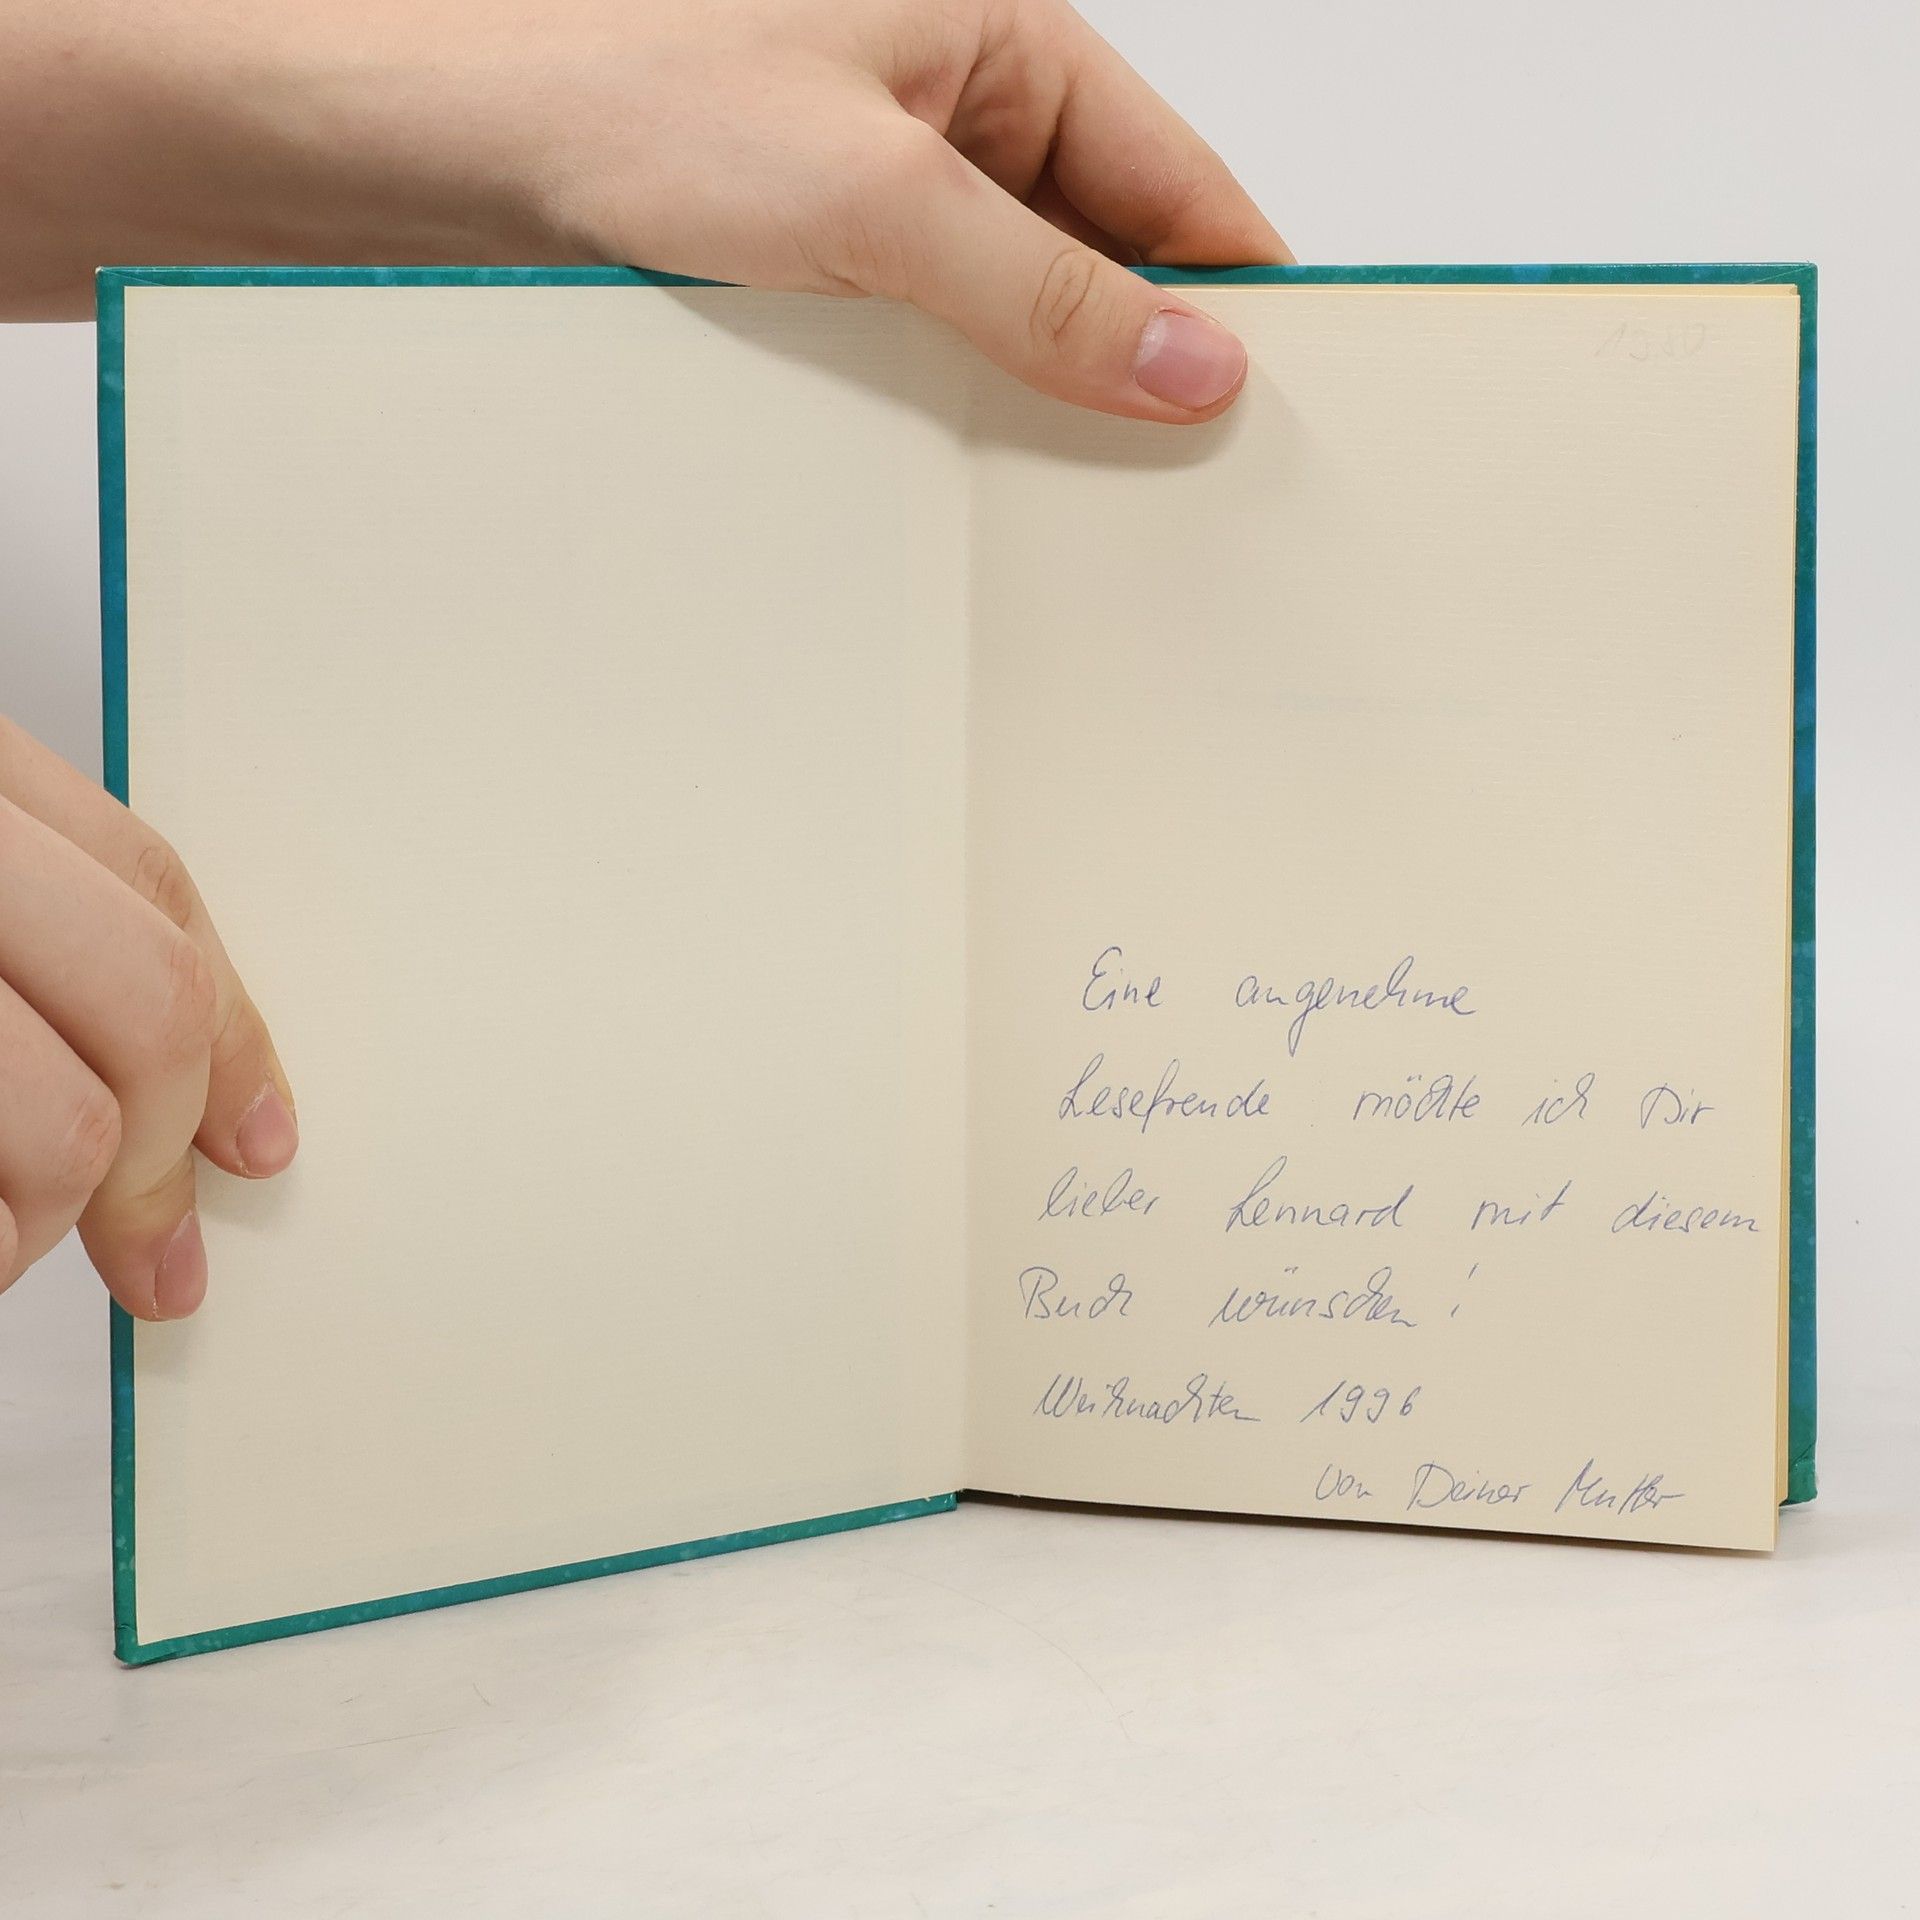 Eine angenehme
Lesefreude möchte ich Dir
lieber Lennard mit diesem
Buch wünschen!
Weihnachten 1996
von Deiner Mutter